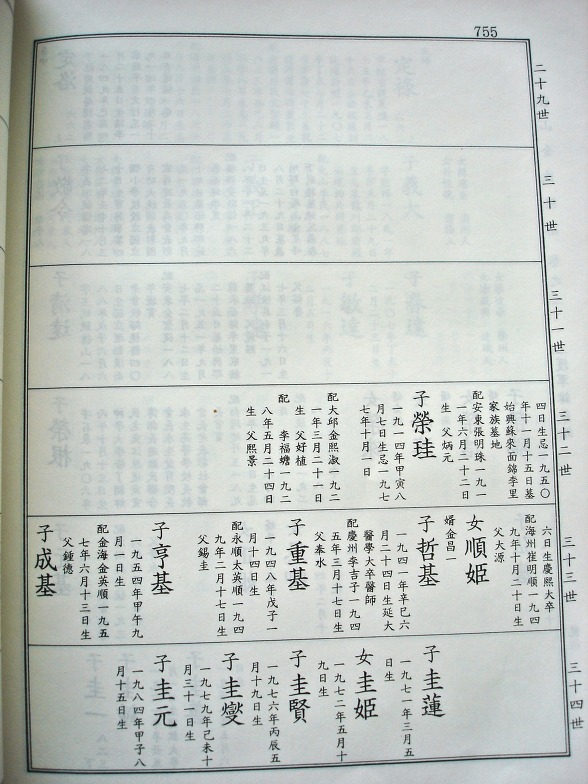 755
二十九世
三十世
三十一世
三十二世
四日生忌一九五〇
年十一月十五日墓
始興蘇來面錦李里
家族墓地
配安東張明珠一九一
一年六月二十二日
生　父炳元
子榮珪
一九一四年甲寅八
月七日生忌一九七
七年十月一日
配大邱金熙淑一九二
一年三月二十一日
生　父好植
配　李福蟾一九二
八年五月二十四日
生　父熙景
三十三世
六日生慶熙大卒
配海州崔明順一九四
九年十月二十日生
父大源
女順姬
婿金昌一
子哲基
一九四一年辛巳六
月二十四日生延大
醫學大卒醫師
配慶州李吉子一九四
五年三月十七日生
父泰水
子重基
一九四八年戊子一
月十四日生
配永順太英順一九四
九年二月十七日生
父錫圭
子亨基
一九五四年甲午九
月一日生
配金海金英順一九五
七年六月十三日生
父鍾德
子成基
三十四世
子圭蓮
一九七一年三月五
日生
女圭姬
一九七二年五月十
九日生
子圭賢
一九七六年丙辰五
月十九日生
子圭燮
一九七九年己未十
月三十一日生
子圭元
一九八四年甲子八
月十五日生